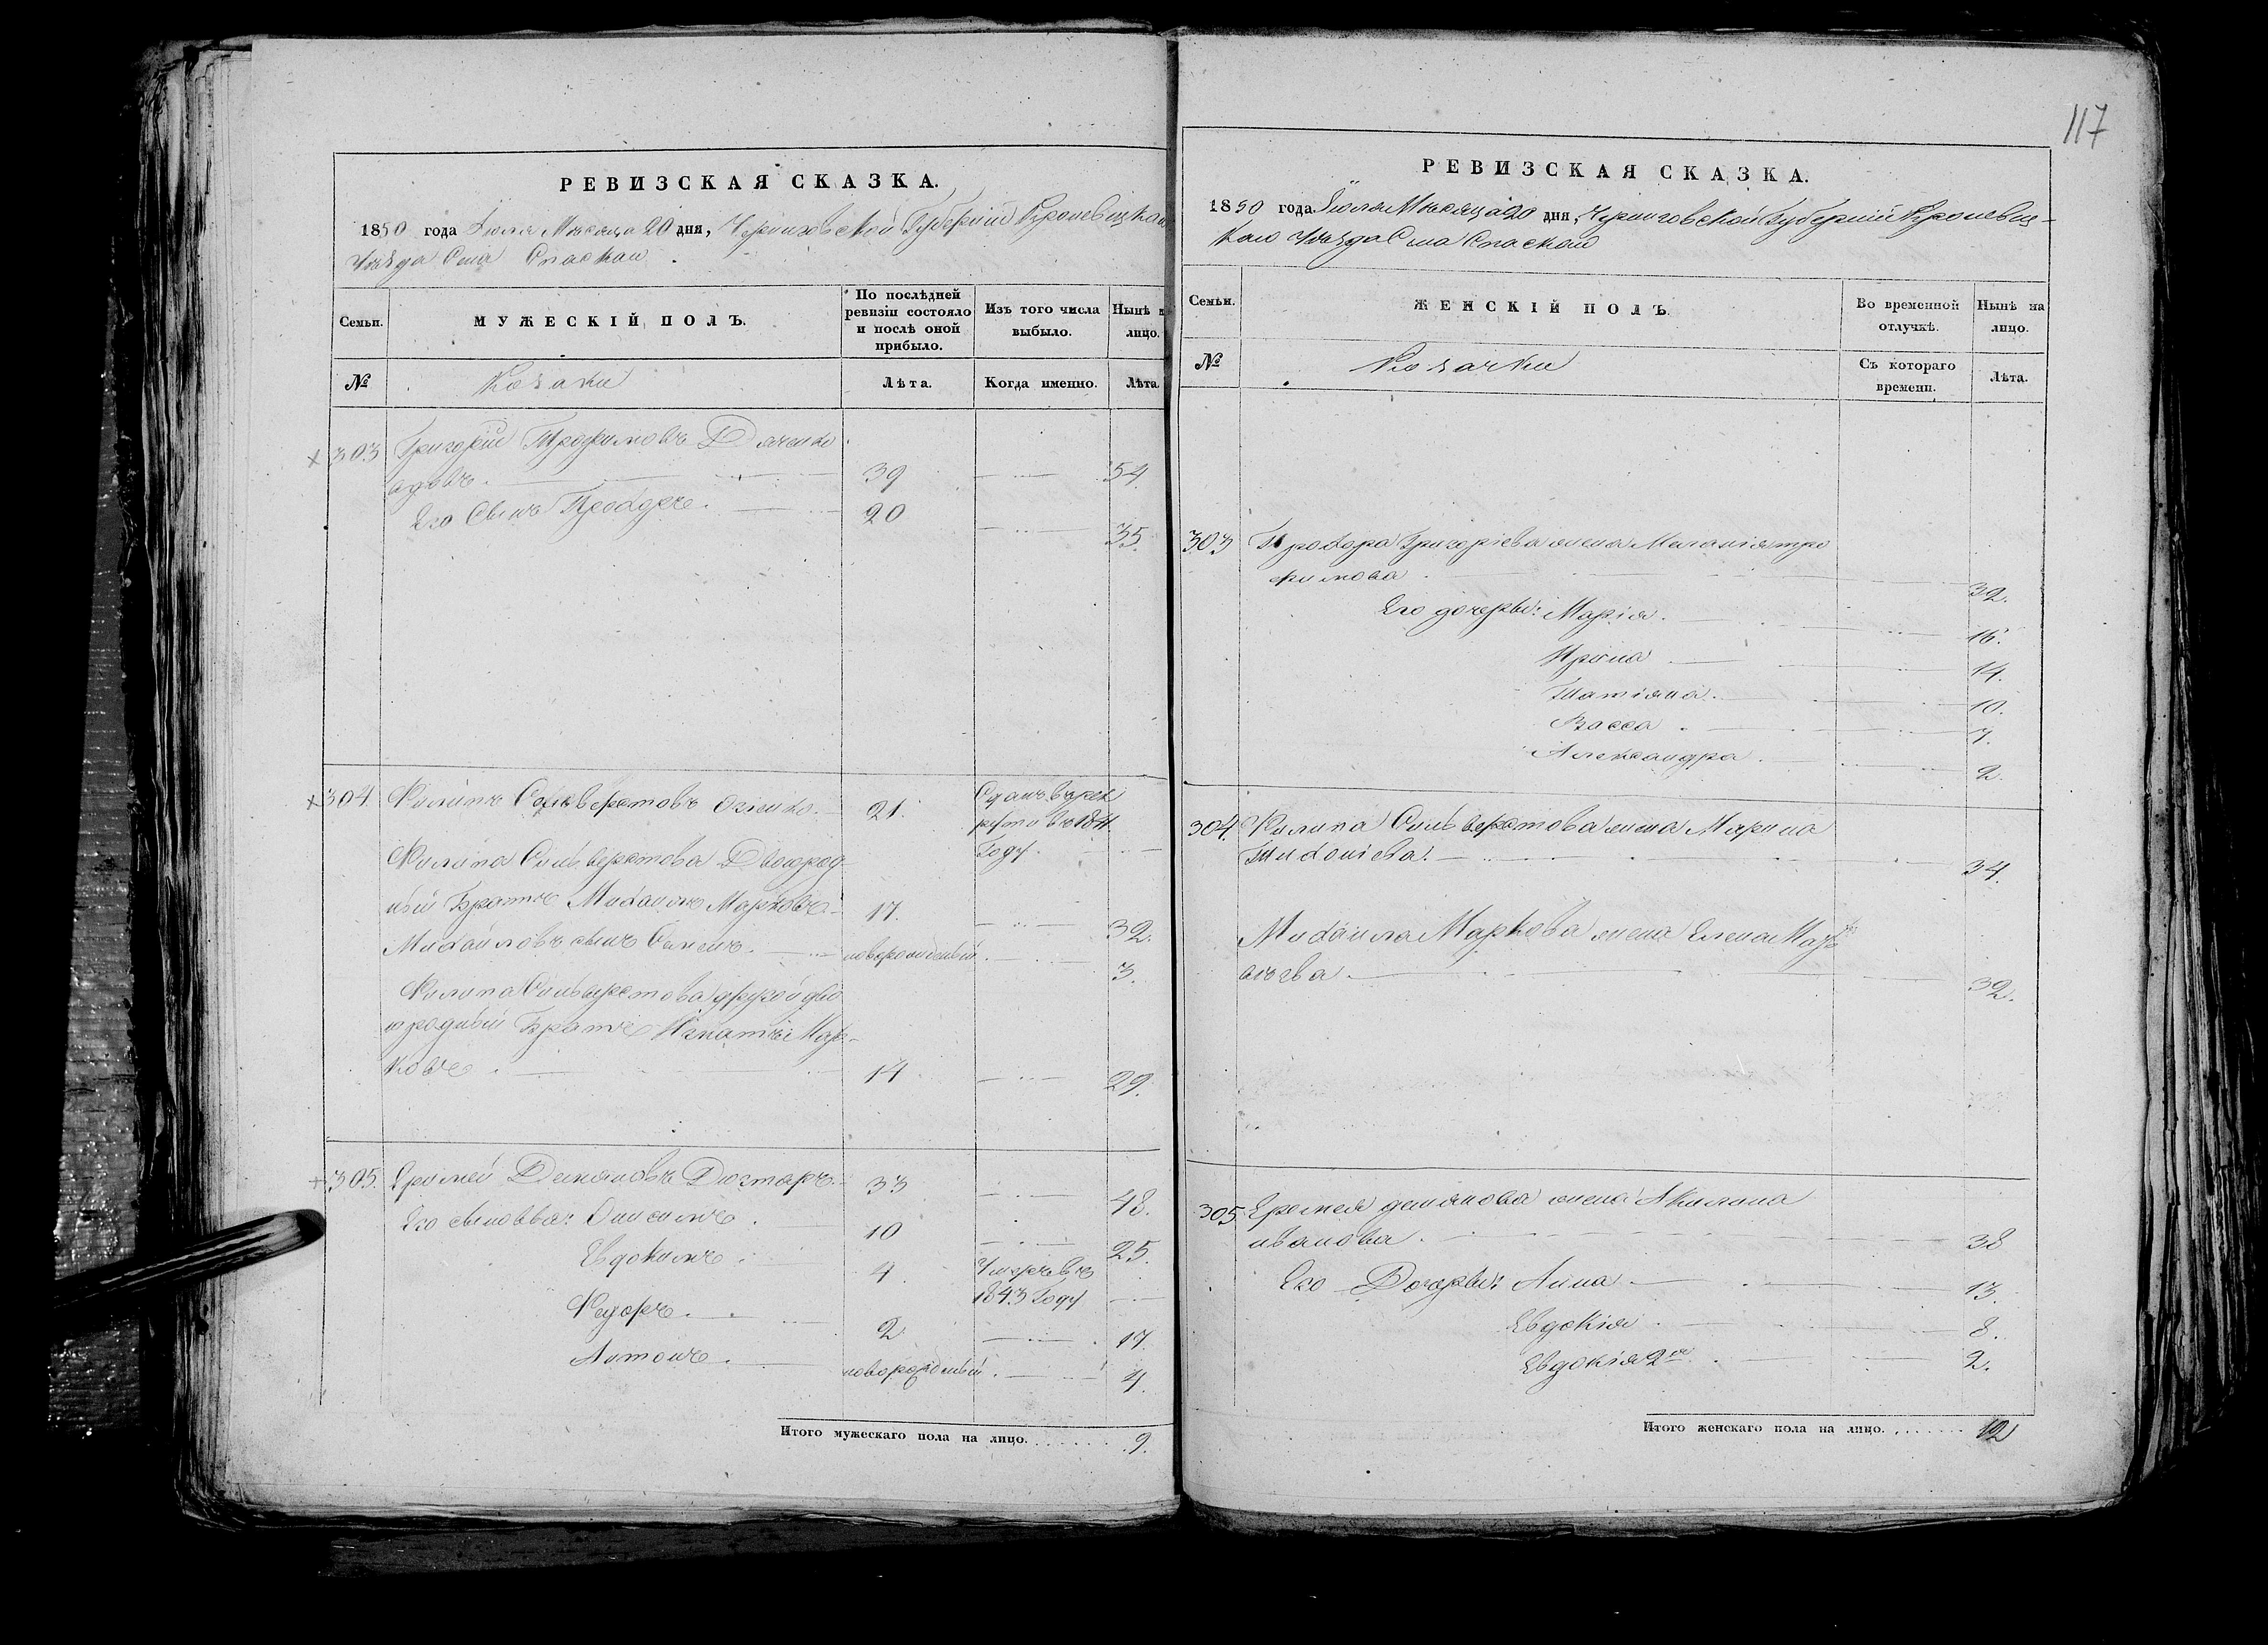 РЕВИЗСКАЯ СКАЗКА.
1850 года Июля Месяца 20 дня, Черниговской Губернии Кролевецкаго
Уезда Села Спаскаго
Семьи.
МУЖЕСКІЙ ПОЛЪ.
По послѣдней ревизіи состояло и послѣ оной прибыло.
Изъ того числа выбыло.
Нынѣ на лицо.
№
Козаки
Лѣта.
Когда именно.
Лѣта.
303 Григорій Трофимовъ
39 54
Его Сынъ Прохоръ. 20 35.
304 Филипъ Сильверстовъ 21. Сданъ в рек
руты въ 1841
Году.
Филипа Сильверстова Двоюрод
ный Братъ Михаилъ Марковъ 17. 32.
Михаиловъ сынъ Семенъ. новорожденный. 3.
Филипа Сильверстова другой дво
юродный Братъ Игнатій Мар-
ковъ. 14 29.
305. Еремей Демяновъ Дегтярь. 33 48.
Его сыновья: Онисимъ 10 25.
Евдокимъ. 4 Умеръ въ
1843 Году
Федоръ. 2 17.
Антонъ. новорожденный. 4.
Итого мужескаго пола на лицо. 9.
117
РЕВИЗСКАЯ СКАЗКА.
1850 года Июля Месяца 20 дня, Черниговской Губерніи Кролевец-
каго Уезда Села Спаскаго
Семьи.
ЖЕНСКІЙ ПОЛЪ
Во временной отлучкѣ.
Нынѣ на лицо.
№
Козачки
Съ котораго времени.
Лѣта.
303 Прохора Григоріева жена Меланія Тро
фимова. 32.
Его дочеры: Марія. 16.
Ирина 14.
Татіяна. 10.
Васса. 7.
Александра. 2.
304. Филипа Сильверстова жена Марина
Тихоніева. 34.
Михаила Маркова жена Елена
32.
305. Еремея Демянова жена Акилина
иванова. 38
Его Дочеры: Анна 13.
Евдокія. 8.
Евдокія 2я. 2.
Итого женскаго пола на лицо. 12